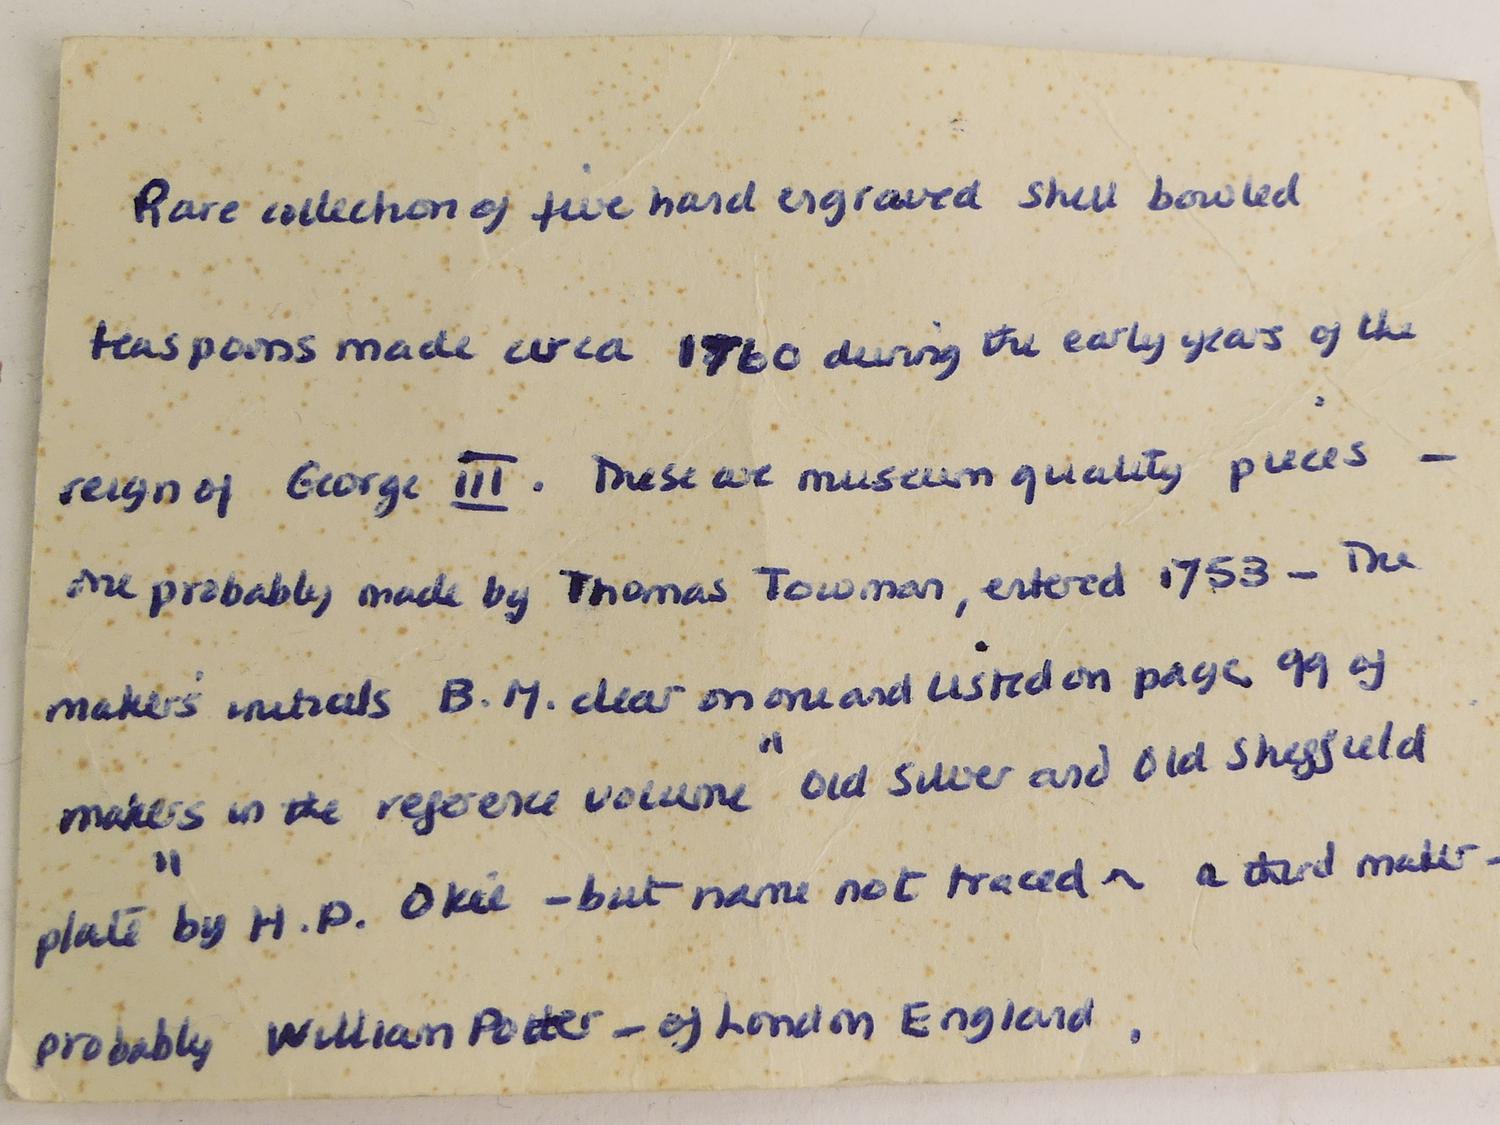 Rare collection of five hand engraved shell bowled
teaspoons made circa 1760 during the early years of the
reign of George III. These are museum quality pieces -
One probably made by Thomas Towman, entered 1753 - The
makers' initials B.M. clear on one and listed on page 99 of
makers in the reference volume "Old Silver and Old Sheffield
plate" by H.P. Okie - but name not traced ~ a third maker -
probably William Potter - of London England.